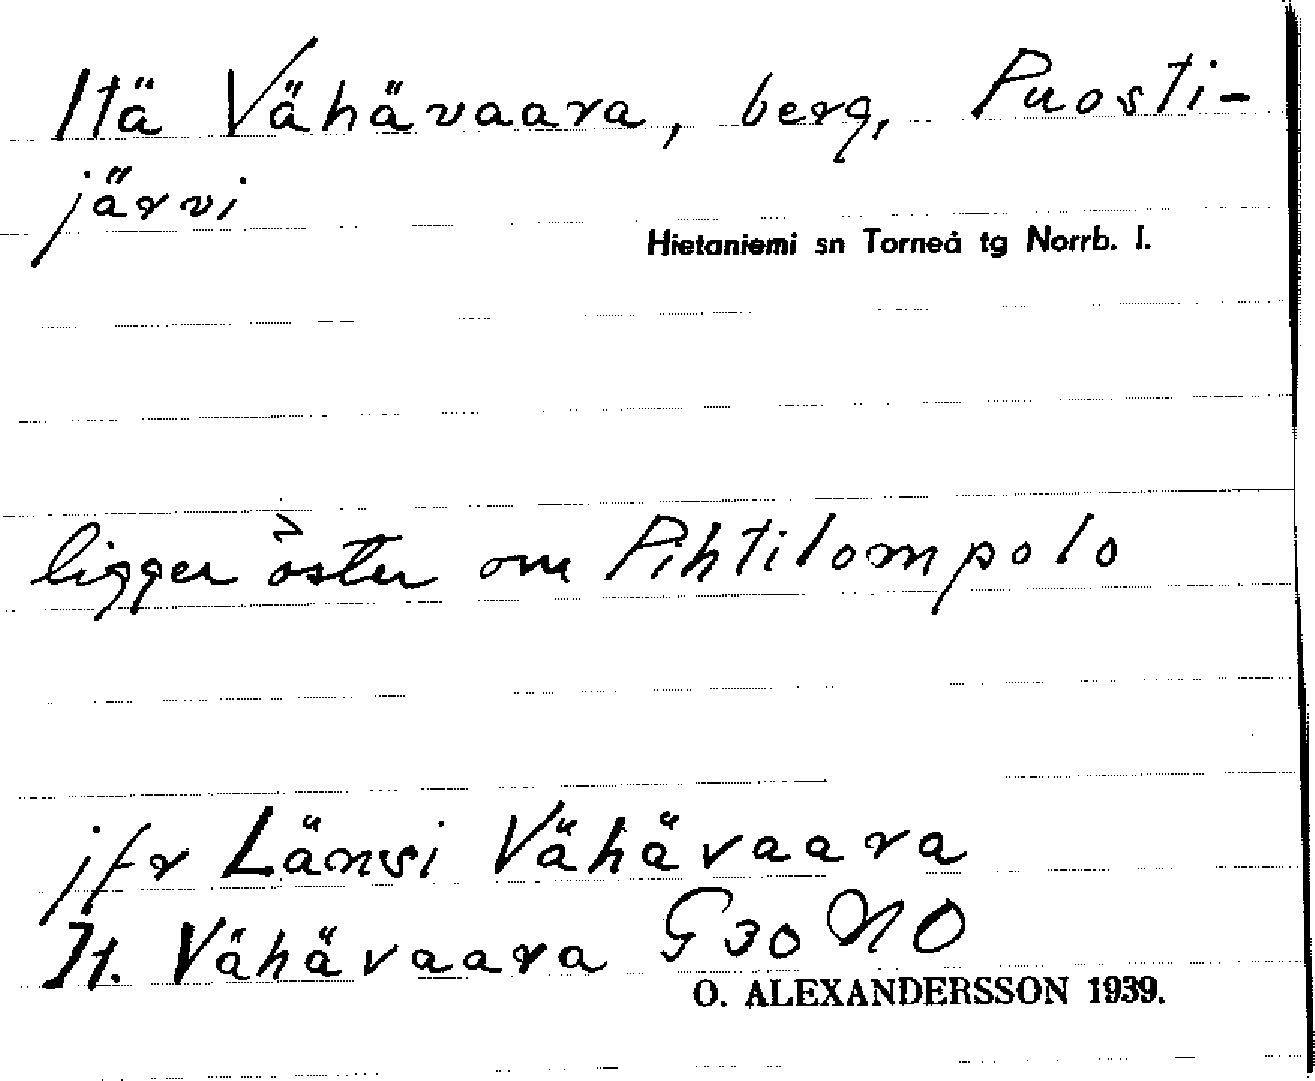 Itä Vähävaara, berg, Puosti-
järvi
Hietaniemi sn Torneå tg Norrb. l.
ligger öster om Pihtilompolo
jfr Länsi Vähävaara
It. Vähävaara G 30 NO
O. ALEXANDERSSON 1939.